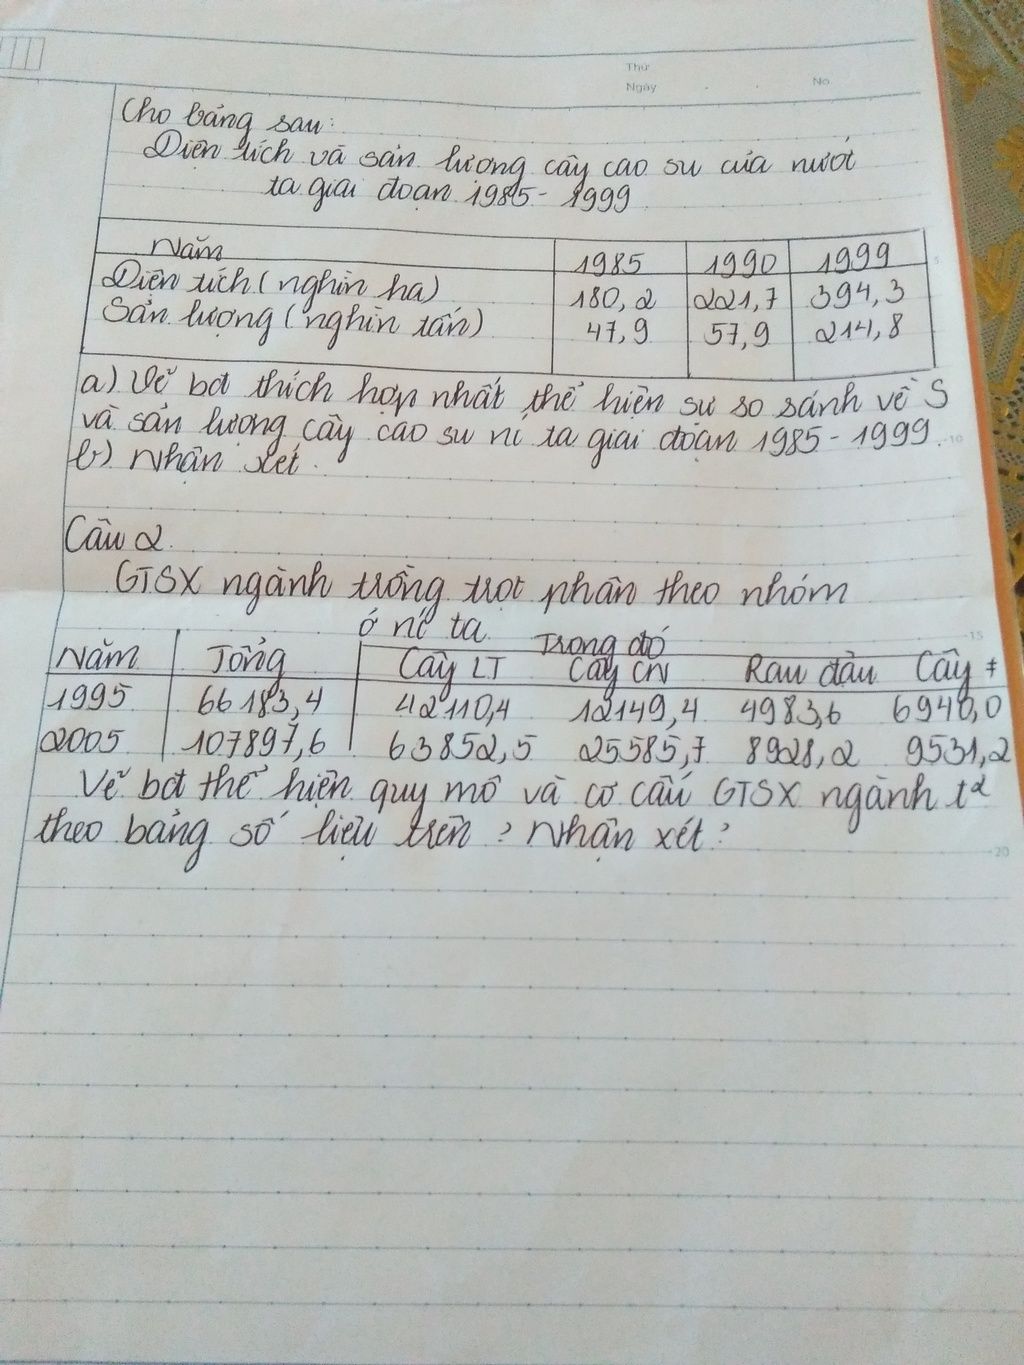 Thứ
Ngày No.
Cho bảng sau:
Diện tích và sản lượng cây cao su của nước
ta giai đoạn 1985 - 1999
Năm 1985 1990 1999
Diện tích (nghìn ha) 180,2 221,7 394,3
Sản lượng (nghìn tấn) 47,9 57,9 214,8
a) Vẽ bđ thích hợp nhất thể hiện sự so sánh về S
và sản lượng cây cao su nc ta giai đoạn 1985 - 1999.
b) Nhận xét.
Câu 2.
GTSX ngành trồng trọt phân theo nhóm
ở nc ta
Trong đó
Năm Tổng Cây LT Cây CN Rau đậu Cây ≠
1995 66183,4 42110,4 12149,4 4983,6 6940,0
2005 107897,6 63852,5 25585,7 8928,2 9531,2
Vẽ bđ thể hiện quy mô và cơ cấu GTSX ngành t²
theo bảng số liệu trên? Nhận xét?